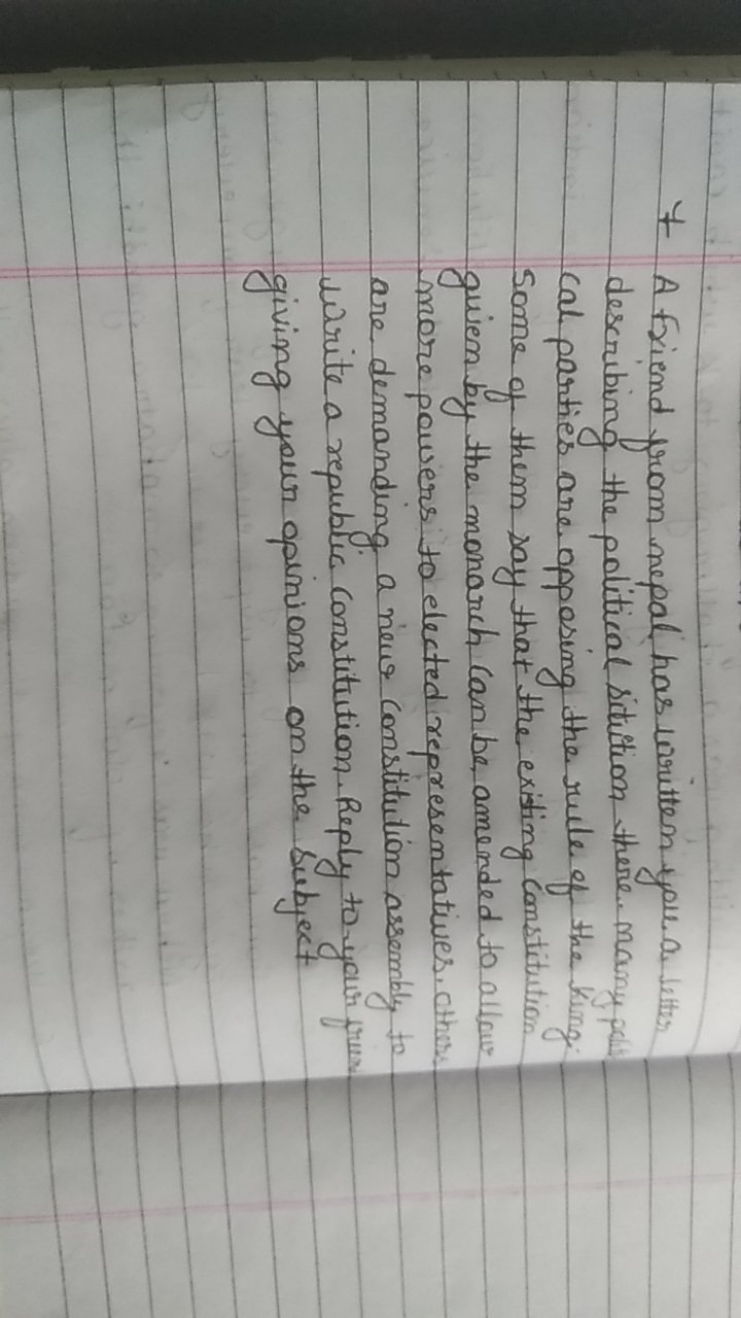 7 A friend from nepal has written you a letter
describing the political sitution there. many politi
cal parties are opposing the rule of the king.
Some of them say that the existing constitution
guien by the monarch can be amended to allow
more powers to elected representatives. others
are demanding a new constitution assembly to
write a republic constitution. Reply to your frien
giving your opinions on the subject